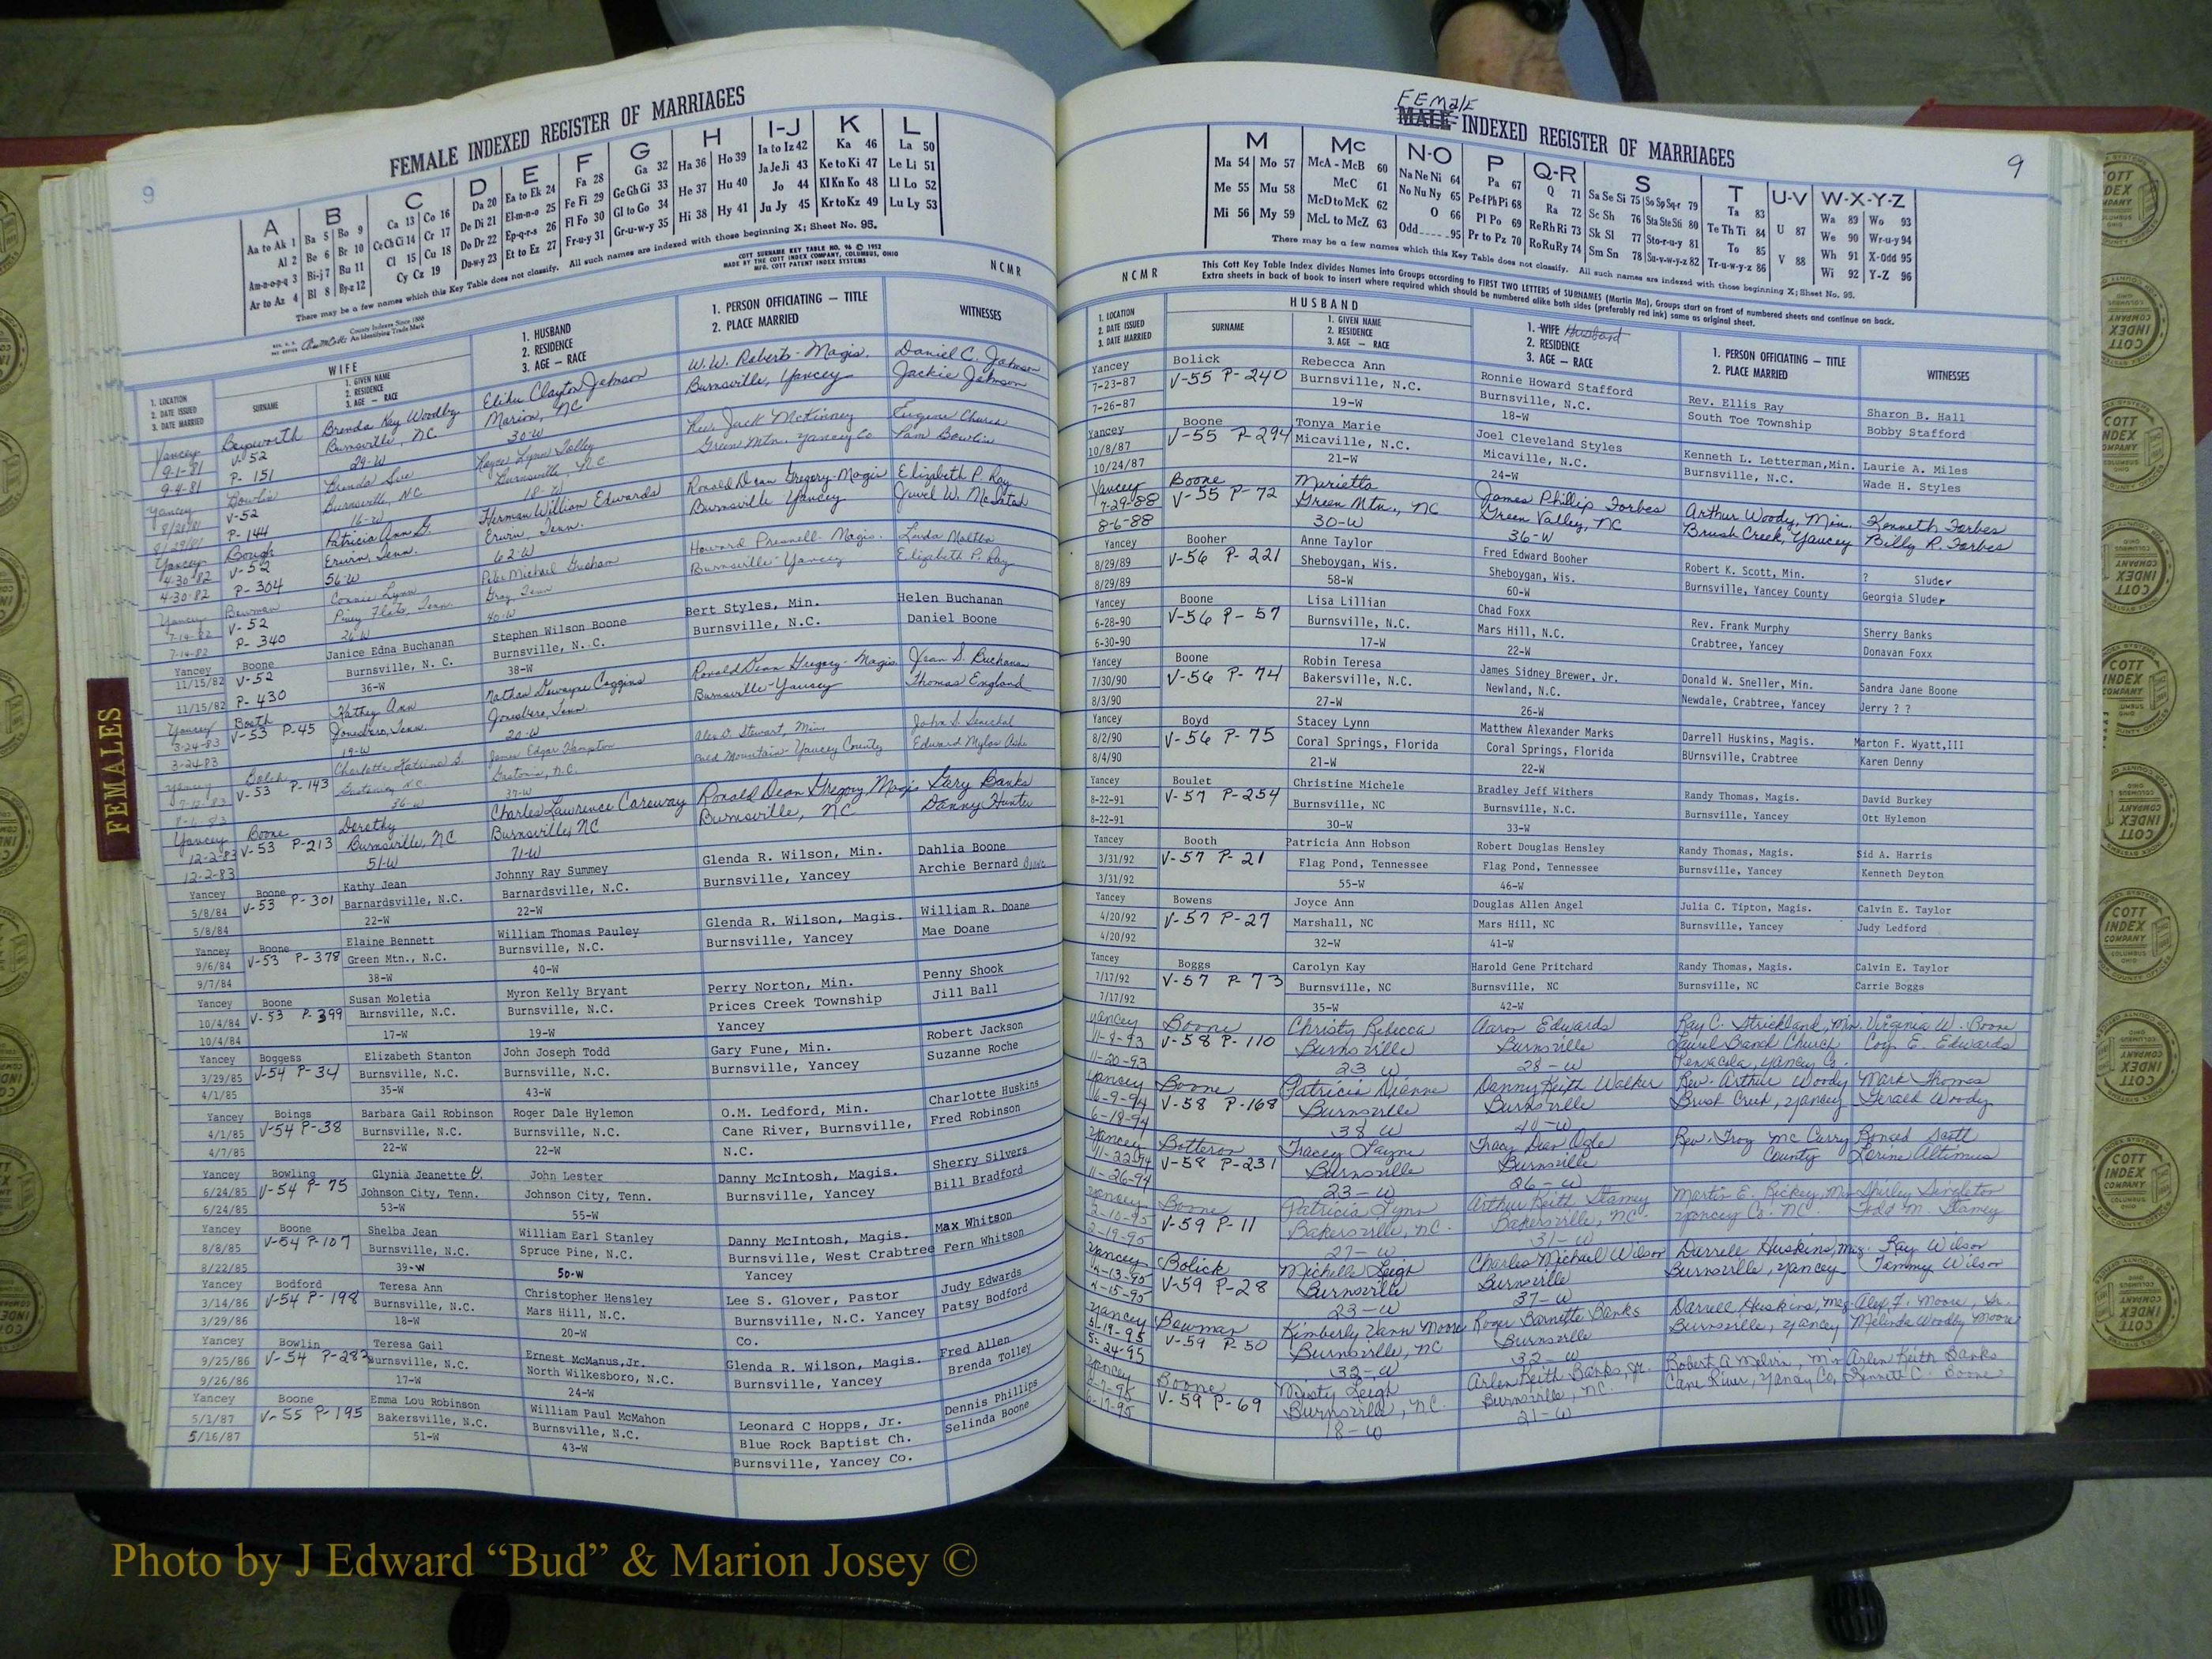 FEMALE INDEXED REGISTER OF MARRIAGES
9
A B C D E F G H I-J K L
Aa to Ak 1 Ba 5 Bo 9 Ca 13 Co 16 Da 20 Ea to Ek 24 Fa 28 Ga 32 Ha 36 Ho 39 Ia to Iz 42 Ka 46 La 50
Al 2 Be 6 Br 10 Ce Ch Ci 14 Cr 17 De Di 21 El-m-n-o 25 Fe Fi 29 Ge Gh Gi 33 He 37 Hu 40 Ja Je Ji 43 Ke to Ki 47 Le Li 51
Am-n-o-p-q 3 Bi-j 7 Bu 11 Cl 15 Cu 18 Do Dr 22 Ep-q-r-s 26 Fl Fo 30 Gl to Go 34 Hi 38 Hy 41 Jo 44 Kl Kn Ko 48 Ll Lo 52
Ar to Az 4 Bl 8 By-z 12 Cy Cz 19 Du-w-y 23 Et to Ez 27 Fr-u-y 31 Gr-u-w-y 35 Ju Jy 45 Kr to Kz 49 Lu Ly 53
There may be a few names which this Key Table does not classify. All such names are indexed with those beginning X; Sheet No. 96.
COTT SURNAME KEY TABLE NO. 96 © 1952
MADE BY THE COTT INDEX COMPANY, COLUMBUS, OHIO
MFG. COTT PATENT INDEX SYSTEMS
NCMR
County Indexes Since 1888
An Identifying Trade Mark
WIFE
1. LOCATION 2. DATE ISSUED 3. DATE MARRIED
SURNAME
1. GIVEN NAME 2. RESIDENCE 3. AGE — RACE
1. HUSBAND 2. RESIDENCE 3. AGE — RACE
1. PERSON OFFICIATING — TITLE 2. PLACE MARRIED
WITNESSES
Yancey Brenda Kay Woodby Elihu Clayton Johnson W.W. Roberts - Magis. Daniel C. Johnson
9-1-81 V-52 Burnsville, NC Marion, NC Burnsville, Yancey Jackie Johnson
9-4-81 P-151 29-W 30-W
Yancey Bowlin Brenda Sue Lynn Tolley Rev. Jack McKinney Eugene
V-52 Burnsville, NC Burnsville, NC Green Mtn. Yancey Co Pam Bowlin
8/29/81 P-144 16-W 18-W
Yancey Bough Patricia Ann G. Herman William Edwards Ronald Dean Gregory-Magis Elizabeth P. Ray
4-30-82 V-52 Erwin, Tenn. Erwin Tenn. Burnsville Yancey
4-30-82 P-304 56-W 62-W
Yancey Bowman Connie Lynn Michael Howard Presnell-Magis. Linda
7-14-82 V-52 Piney Flats, Tenn. Gray Tenn Burnsville-Yancey Elizabeth P. Ray
7-14-82 P-340 26-W 40-W
Yancey Boone Janice Edna Buchanan Stephen Wilson Boone Bert Styles, Min. Helen Buchanan
11/15/82 V-52 Burnsville, N. C. Burnsville, N. C. Burnsville, N.C. Daniel Boone
11/15/82 P-430 36-W 38-W
Yancey Booth Kathey Ann Nathan Dewayne Coggins Ronald Dean Gregory-Magis Jean S. Buchanan
3-24-83 V-53 P-45 Jonesboro, Tenn. Jonesboro, Tenn. Burnsville-Yancey Thomas England
3-24-83 19-W 20-W
Yancey Bolch Charlotte Katrina S. James Edgar Hampton Alex D. Stewart, Min. John S. Senechal
V-53 P-143 Gastonia, N.C. Gastonia, N.C. Bald Mountain-Yancey County Edward Mylow
8-6-83 36-W 37-W
Yancey Boone Dorothy Charles Lawrence Caraway Ronald Dean Gregory Magis Gary Banks
12-2-83 V-53 P-213 Burnsville, NC Burnsville, NC Burnsville, NC Danny Hunter
12-2-83 51-W 71-W
Yancey Boone Kathy Jean Johnny Ray Summey Glenda R. Wilson, Min. Dahlia Boone
5/8/84 V-53 P-301 Barnardsville, N.C. Barnardsville, N.C. Burnsville, Yancey Archie Bernard Boone
5/8/84 22-W 22-W
Yancey Boone Elaine Bennett William Thomas Pauley Glenda R. Wilson, Magis. William R. Doane
9/6/84 V-53 P-378 Green Mtn., N.C. Burnsville, N.C. Burnsville, Yancey Mae Doane
9/7/84 38-W 40-W
Yancey Boone Susan Moletia Myron Kelly Bryant Perry Norton, Min. Penny Shook
10/4/84 V-53 P-399 Burnsville, N.C. Burnsville, N.C. Prices Creek Township Jill Ball
10/4/84 17-W 19-W Yancey
Yancey Boggess Elizabeth Stanton John Joseph Todd Gary Fune, Min. Robert Jackson
3/29/85 V-54 P-34 Burnsville, N.C. Burnsville, N.C. Burnsville, Yancey Suzanne Roche
4/1/85 35-W 43-W
Yancey Boings Barbara Gail Robinson Roger Dale Hylemon O.M. Ledford, Min. Charlotte Huskins
4/1/85 V-54 P-38 Burnsville, N.C. Burnsville, N.C. Cane River, Burnsville, Fred Robinson
4/7/85 22-W 22-W N.C.
Yancey Bowling Glynia Jeanette O. John Lester Danny McIntosh, Magis. Sherry Silvers
6/24/85 V-54 P-75 Johnson City, Tenn. Johnson City, Tenn. Burnsville, Yancey Bill Bradford
6/24/85 53-W 55-W
Yancey Boone Shelba Jean William Earl Stanley Danny McIntosh, Magis. Max Whitson
8/8/85 V-54 P-107 Burnsville, N.C. Spruce Pine, N.C. Burnsville, West Crabtree Fern Whitson
8/22/85 39-W 50-W Yancey
Yancey Bodford Teresa Ann Christopher Hensley Lee S. Glover, Pastor Judy Edwards
3/14/86 V-54 P-198 Burnsville, N.C. Mars Hill, N.C. Burnsville, N.C. Yancey Patsy Bodford
3/29/86 18-W 20-W Co.
Yancey Bowlin Teresa Gail Ernest McManus,Jr. Glenda R. Wilson, Magis. Fred Allen
9/25/86 V-54 P-282 Burnsville, N.C. North Wilkesboro, N.C. Burnsville, Yancey Brenda Tolley
9/26/86 17-W 24-W
Yancey Boone Emma Lou Robinson William Paul McMahon Leonard C Hopps, Jr. Dennis Phillips
5/1/87 V-55 P-195 Bakersville, N.C. Burnsville, N.C. Blue Rock Baptist Ch. Selinda Boone
5/16/87 51-W 43-W Burnsville, Yancey Co.
FEMALES
FEMALE
MALE INDEXED REGISTER OF MARRIAGES
9
M Mc N-O P Q-R S T U-V W-X-Y-Z
Ma 54 Mo 57 McA - McB 60 Na Ne Ni 64 Pa 67 Q 71 Sa Se Si 75 So Sp Sq-r 79 Ta 83 Wa 89 Wo 93
Me 55 Mu 58 McC 61 No Nu Ny 65 Pe-f Ph Pi 68 Ra 72 Sc Sh 76 Sta Ste Sti 80 Te Th Ti 84 U 87 We 90 Wr-u-y 94
Mi 56 My 59 McD to McK 62 O 66 Pl Po 69 Re Rh Ri 73 Sk Sl 77 Sto-r-u-y 81 To 85 V 88 Wh 91 X-Odd 95
McL to McZ 63 Odd 95 Pr to Pz 70 Ro Ru Ry 74 Sm Sn 78 Su-v-w-y-z 82 Tr-u-w-y-z 86 Wi 92 Y-Z 96
There may be a few names which this Key Table does not classify. All such names are indexed with those beginning X; Sheet No. 95.
NCMR
This Cott Key Table Index divides Names into Groups according to FIRST TWO LETTERS of SURNAMES (Martin Ma), Groups start on front of numbered sheets and continue on back.
Extra sheets in back of book to insert where required which should be numbered alike both sides (preferably red ink) same as original sheet.
HUSBAND
1. LOCATION 2. DATE ISSUED 3. DATE MARRIED
SURNAME
1. GIVEN NAME 2. RESIDENCE 3. AGE — RACE
1. WIFE Husband 2. RESIDENCE 3. AGE — RACE
1. PERSON OFFICIATING — TITLE 2. PLACE MARRIED
WITNESSES
Yancey Bolick Rebecca Ann Ronnie Howard Stafford Rev. Ellis Ray Sharon B. Hall
7-23-87 V-55 P-240 Burnsville, N.C. Burnsville, N.C. South Toe Township Bobby Stafford
7-26-87 19-W 18-W
Yancey Boone Tonya Marie Joel Cleveland Styles Kenneth L. Letterman,Min. Laurie A. Miles
10/8/87 V-55 P-294 Micaville, N.C. Micaville, N.C. Burnsville, N.C. Wade H. Styles
10/24/87 21-W 24-W
Yancey Boone Marietta James Phillip Forbes Arthur Woody, Min. Kenneth Forbes
7-29-88 V-55 P-72 Green Mtn., NC Green Valley, NC Brush Creek, Yancey Billy R. Forbes
8-6-88 30-W 36-W
Yancey Booher Anne Taylor Fred Edward Booher Robert K. Scott, Min. ? Sluder
8/29/89 V-56 P-221 Sheboygan, Wis. Sheboygan, Wis. Burnsville, Yancey County Georgia Sluder
8/29/89 58-W 60-W
Yancey Boone Lisa Lillian Chad Foxx Rev. Frank Murphy Sherry Banks
6-28-90 V-56 P-57 Burnsville, N.C. Mars Hill, N.C. Crabtree, Yancey Donavan Foxx
6-30-90 17-W 22-W
Yancey Boone Robin Teresa James Sidney Brewer, Jr. Donald W. Sneller, Min. Sandra Jane Boone
7/30/90 V-56 P-74 Bakersville, N.C. Newland, N.C. Newdale, Crabtree, Yancey Jerry ? ?
8/3/90 27-W 26-W
Yancey Boyd Stacey Lynn Matthew Alexander Marks Darrell Huskins, Magis. Marton F. Wyatt,III
8/2/90 V-56 P-75 Coral Springs, Florida Coral Springs, Florida BUrnsville, Crabtree Karen Denny
8/4/90 21-W 22-W
Yancey Boulet Christine Michele Bradley Jeff Withers Randy Thomas, Magis. David Burkey
8-22-91 V-57 P-254 Burnsville, NC Burnsville, N.C. Burnsville, Yancey Ott Hylemon
8-22-91 30-W 33-W
Yancey Booth Patricia Ann Hobson Robert Douglas Hensley Randy Thomas, Magis. Sid A. Harris
3/31/92 V-57 P-21 Flag Pond, Tennessee Flag Pond, Tennessee Burnsville, Yancey Kenneth Deyton
3/31/92 55-W 46-W
Yancey Bowens Joyce Ann Douglas Allen Angel Julia C. Tipton, Magis. Calvin E. Taylor
4/20/92 V-57 P-27 Marshall, NC Mars Hill, NC Burnsville, Yancey Judy Ledford
4/20/92 32-W 41-W
Yancey Boggs Carolyn Kay Harold Gene Pritchard Randy Thomas, Magis. Calvin E. Taylor
7/17/92 V-57 P-73 Burnsville, NC Burnsville, NC Burnsville, NC Carrie Boggs
7/17/92 35-W 42-W
Yancey Boone Christy Rebecca Aaron Edwards Ray C. Strickland, Min. Virginia W. Boone
11-9-93 V-58 P-110 Burnsville Burnsville Laurel Branch Church Coy E. Edwards
11-20-93 23 W 28-W Pensacola, Yancey Co.
Yancey Boone Patricia Dianne Danny Keith Walker Rev. Arthur Woody Mark Thomas
6-9-94 V-58 P-168 Burnsville Burnsville Brush Creek, Yancey Gerald Woody
6-18-94 38-W 40-W
Yancey Botteron Tracey Layne Tracy Dean Ogle Rev. Troy McCurry Ronald
11-22-94 V-58 P-231 Burnsville Burnsville County Lorine Altimus
11-26-94 23-W 26-W
Yancey Boone Patricia Lynn Arthur Keith Stamey Martin E. Rickey, Min Shirley Singleton
2-10-95 V-59 P-11 Bakersville, NC. Bakersville, NC. Yancey Co. NC. Todd M. Stamey
2-19-95 27-W 31-W
Yancey Bolick Michelle Leigh Charles Michael Wilson Darrell Huskins, Mag. Kay Wilson
4-13-95 V-59 P-28 Burnsville Burnsville Burnsville, Yancey Tammy Wilson
4-15-95 23-W 37-W
Yancey Bowman Kimberly Vann Moore Roger Barnette Banks Darrell Huskins, Mag. Alex F. Moore, Sr.
5-19-95 V-59 P-50 Burnsville, NC Burnsville Burnsville, Yancey Melinda Woodby Moore
5-24-95 32-W 32-W
Yancey Boone Misty Leigh Arlen Keith Banks, Jr. Robert A Melvin, Min Arlen Keith Banks
V-59 P-69 Burnsville, NC. Burnsville, NC. Cane River, Yancey Co, Kennett C. Boone
6-17-95 18-W 21-W
COTT INDEX COMPANY COLUMBUS OHIO
Photo by J Edward “Bud” & Marion Josey ©